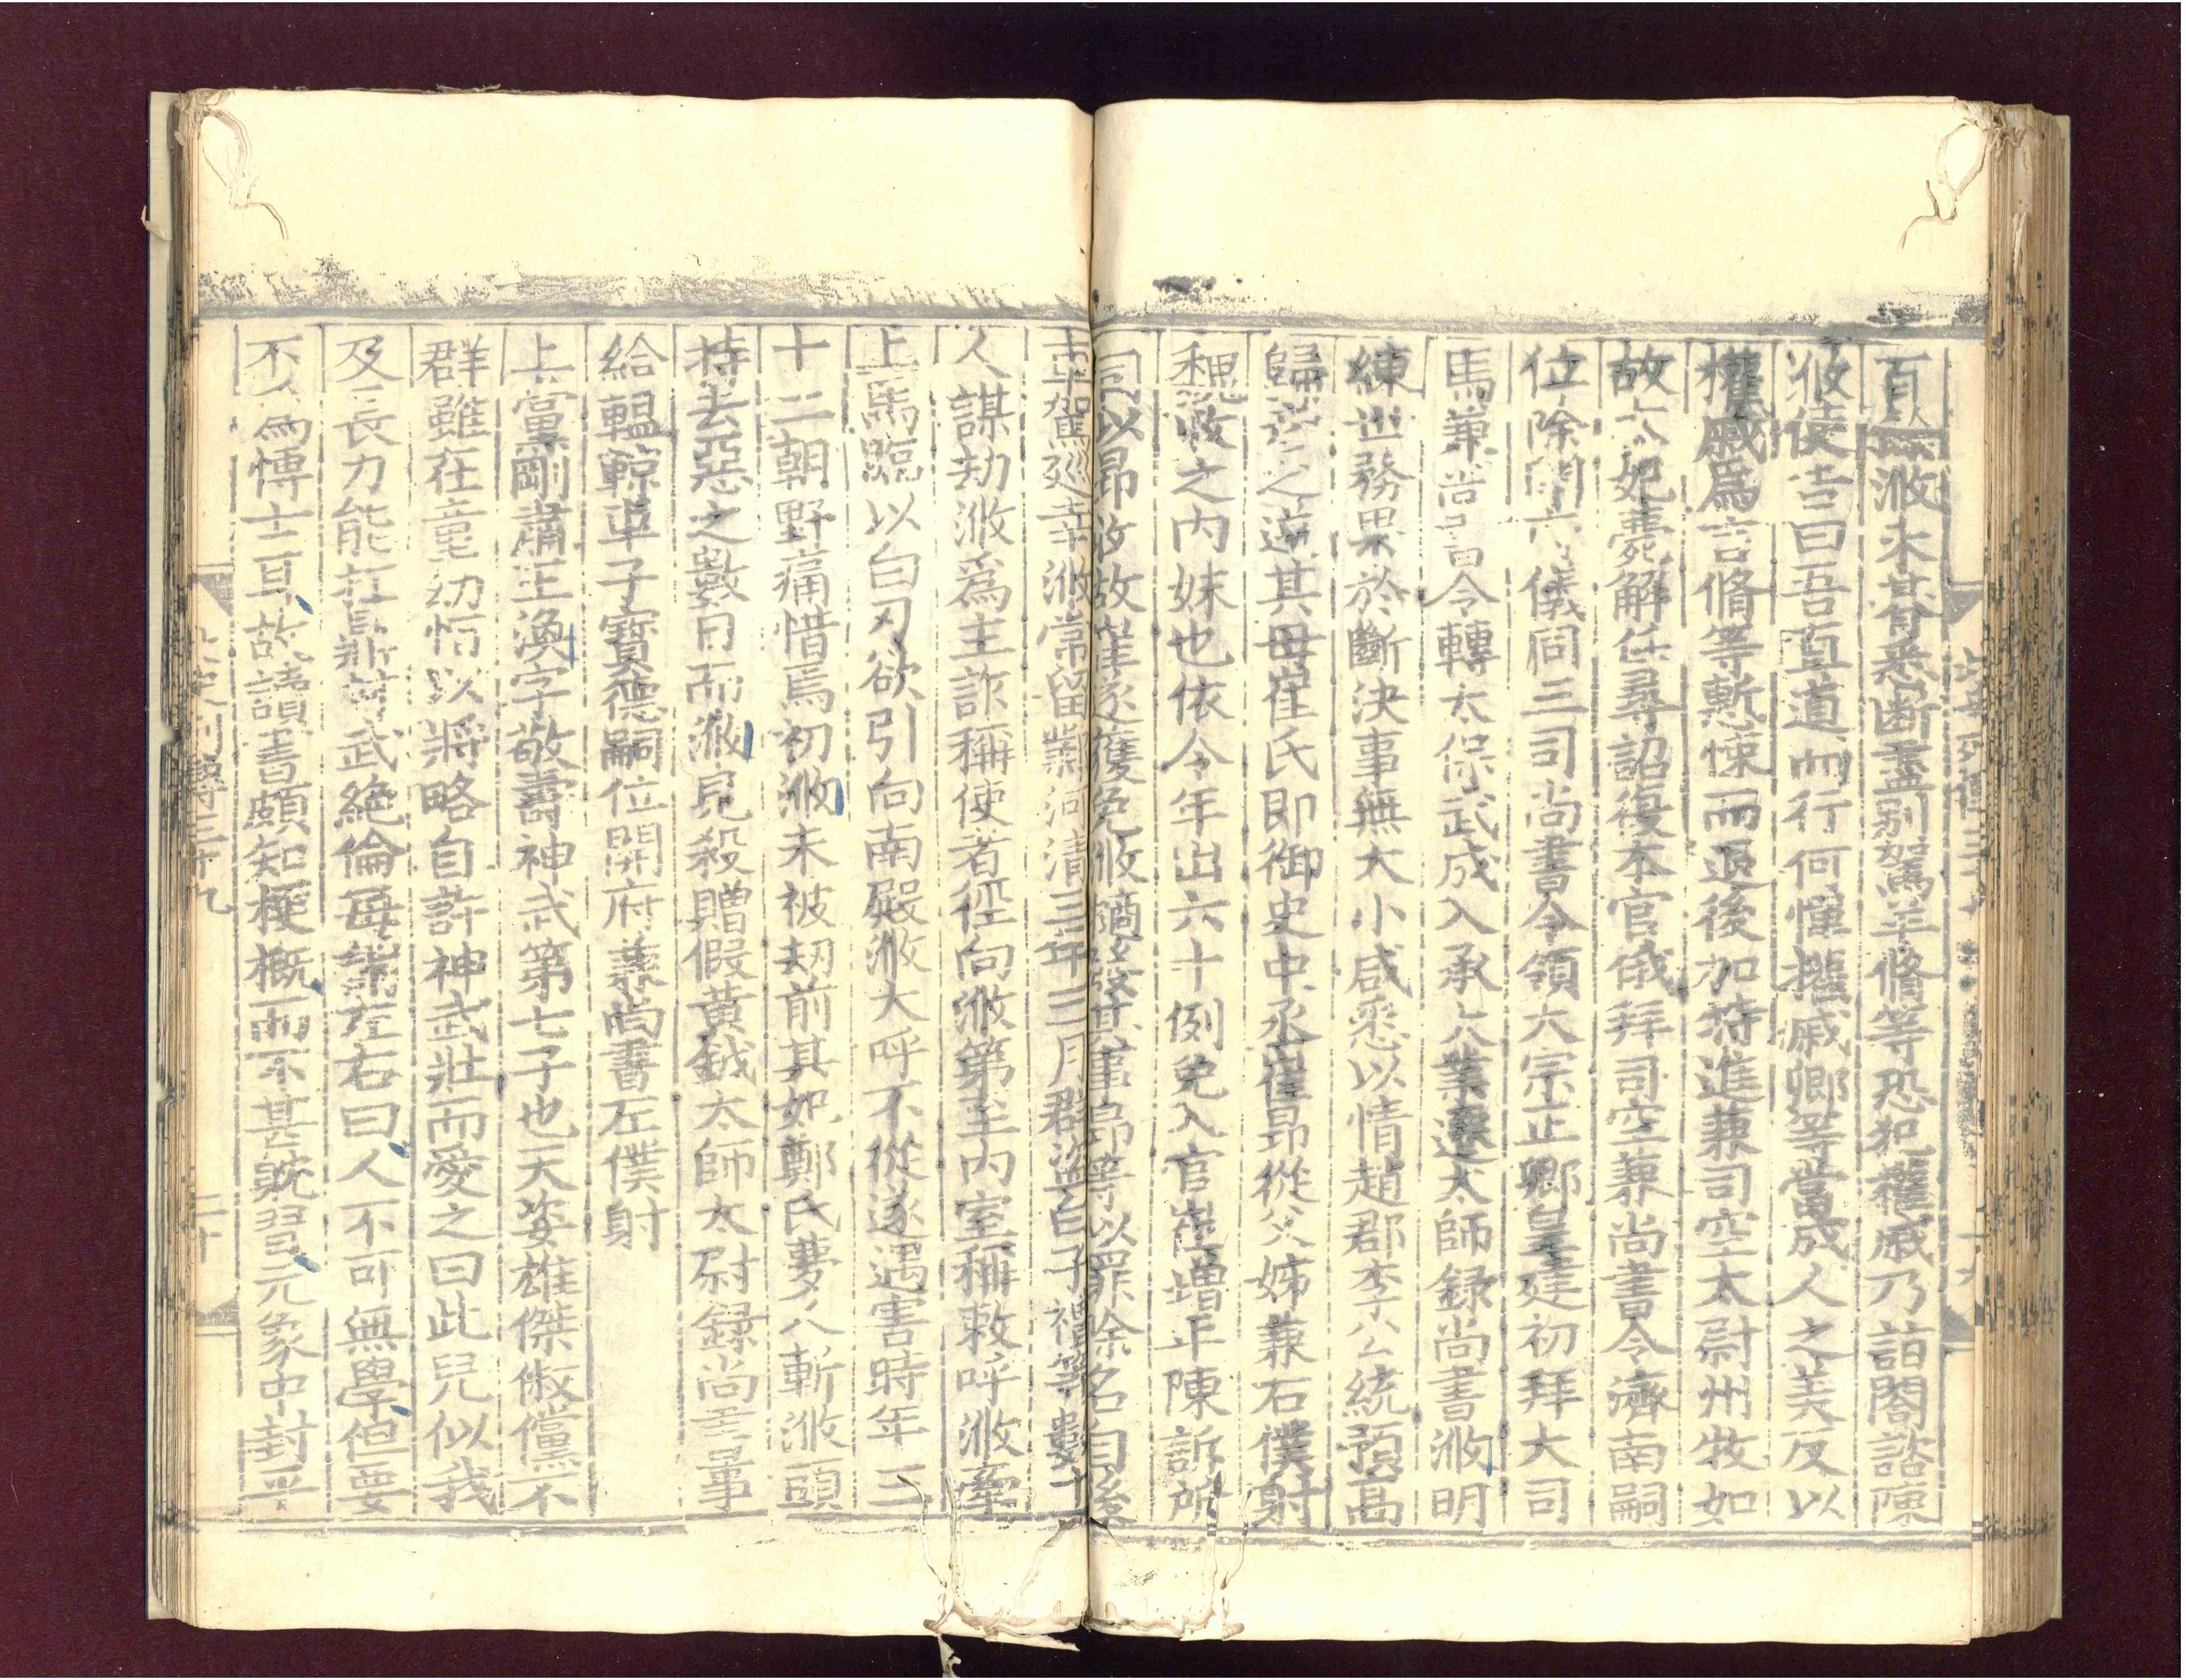 浟未朞悉斷盡別駕羊脩等恐犯權戚乃詣閤諮陳
浟使告曰吾直道而行何憚權戚卿等當成人之美反以
權戚爲言脩等慙悚而退後加特進兼司空太尉州牧如
故太妃薨解任尋詔復本官俄拜司空兼尚書令濟南嗣
位除開府儀同三司尚書令領大宗正卿皇建初拜大司
馬兼尚書令轉太保武成入承大業遷太師録尚書浟明
練世務果於斷決事無大小咸悉以情趙郡李公統預高
歸彦之逆其母崔氏即御史中丞崔昂從父姊兼右僕射
魏收之内妹也依令年出六十例免入官崔增年陳訴所
司以昂收故崔遂獲免浟擿發其事昂等以罪除名自後
車駕廵幸浟常留鄴河清三年三月群盜白子禮等數十
人謀劫浟爲主詐稱使者徑向浟第至内室稱敕呼浟牽
上馬臨以白刃欲引向南殿浟大呼不從遂遇害時年三
十二朝野痛惜焉初浟未被劫前其妃鄭氏夢人斬浟頭
持去惡之數日而浟見殺贈假黃鉞太師太尉録尚書事
給轀輬車子寶德嗣位開府兼尚書左僕射
上黨剛肅王渙字敬壽神武第七子也天姿雄傑俶儻不
群雖在童幼恒以將略自許神武壯而愛之曰此兒似我
及長力能扛鼎材武絶倫每謂左右曰人不可無學但要
不爲博士耳故讀書頗知梗概而不甚躭習元象中封平
北史列傳三十九
二十